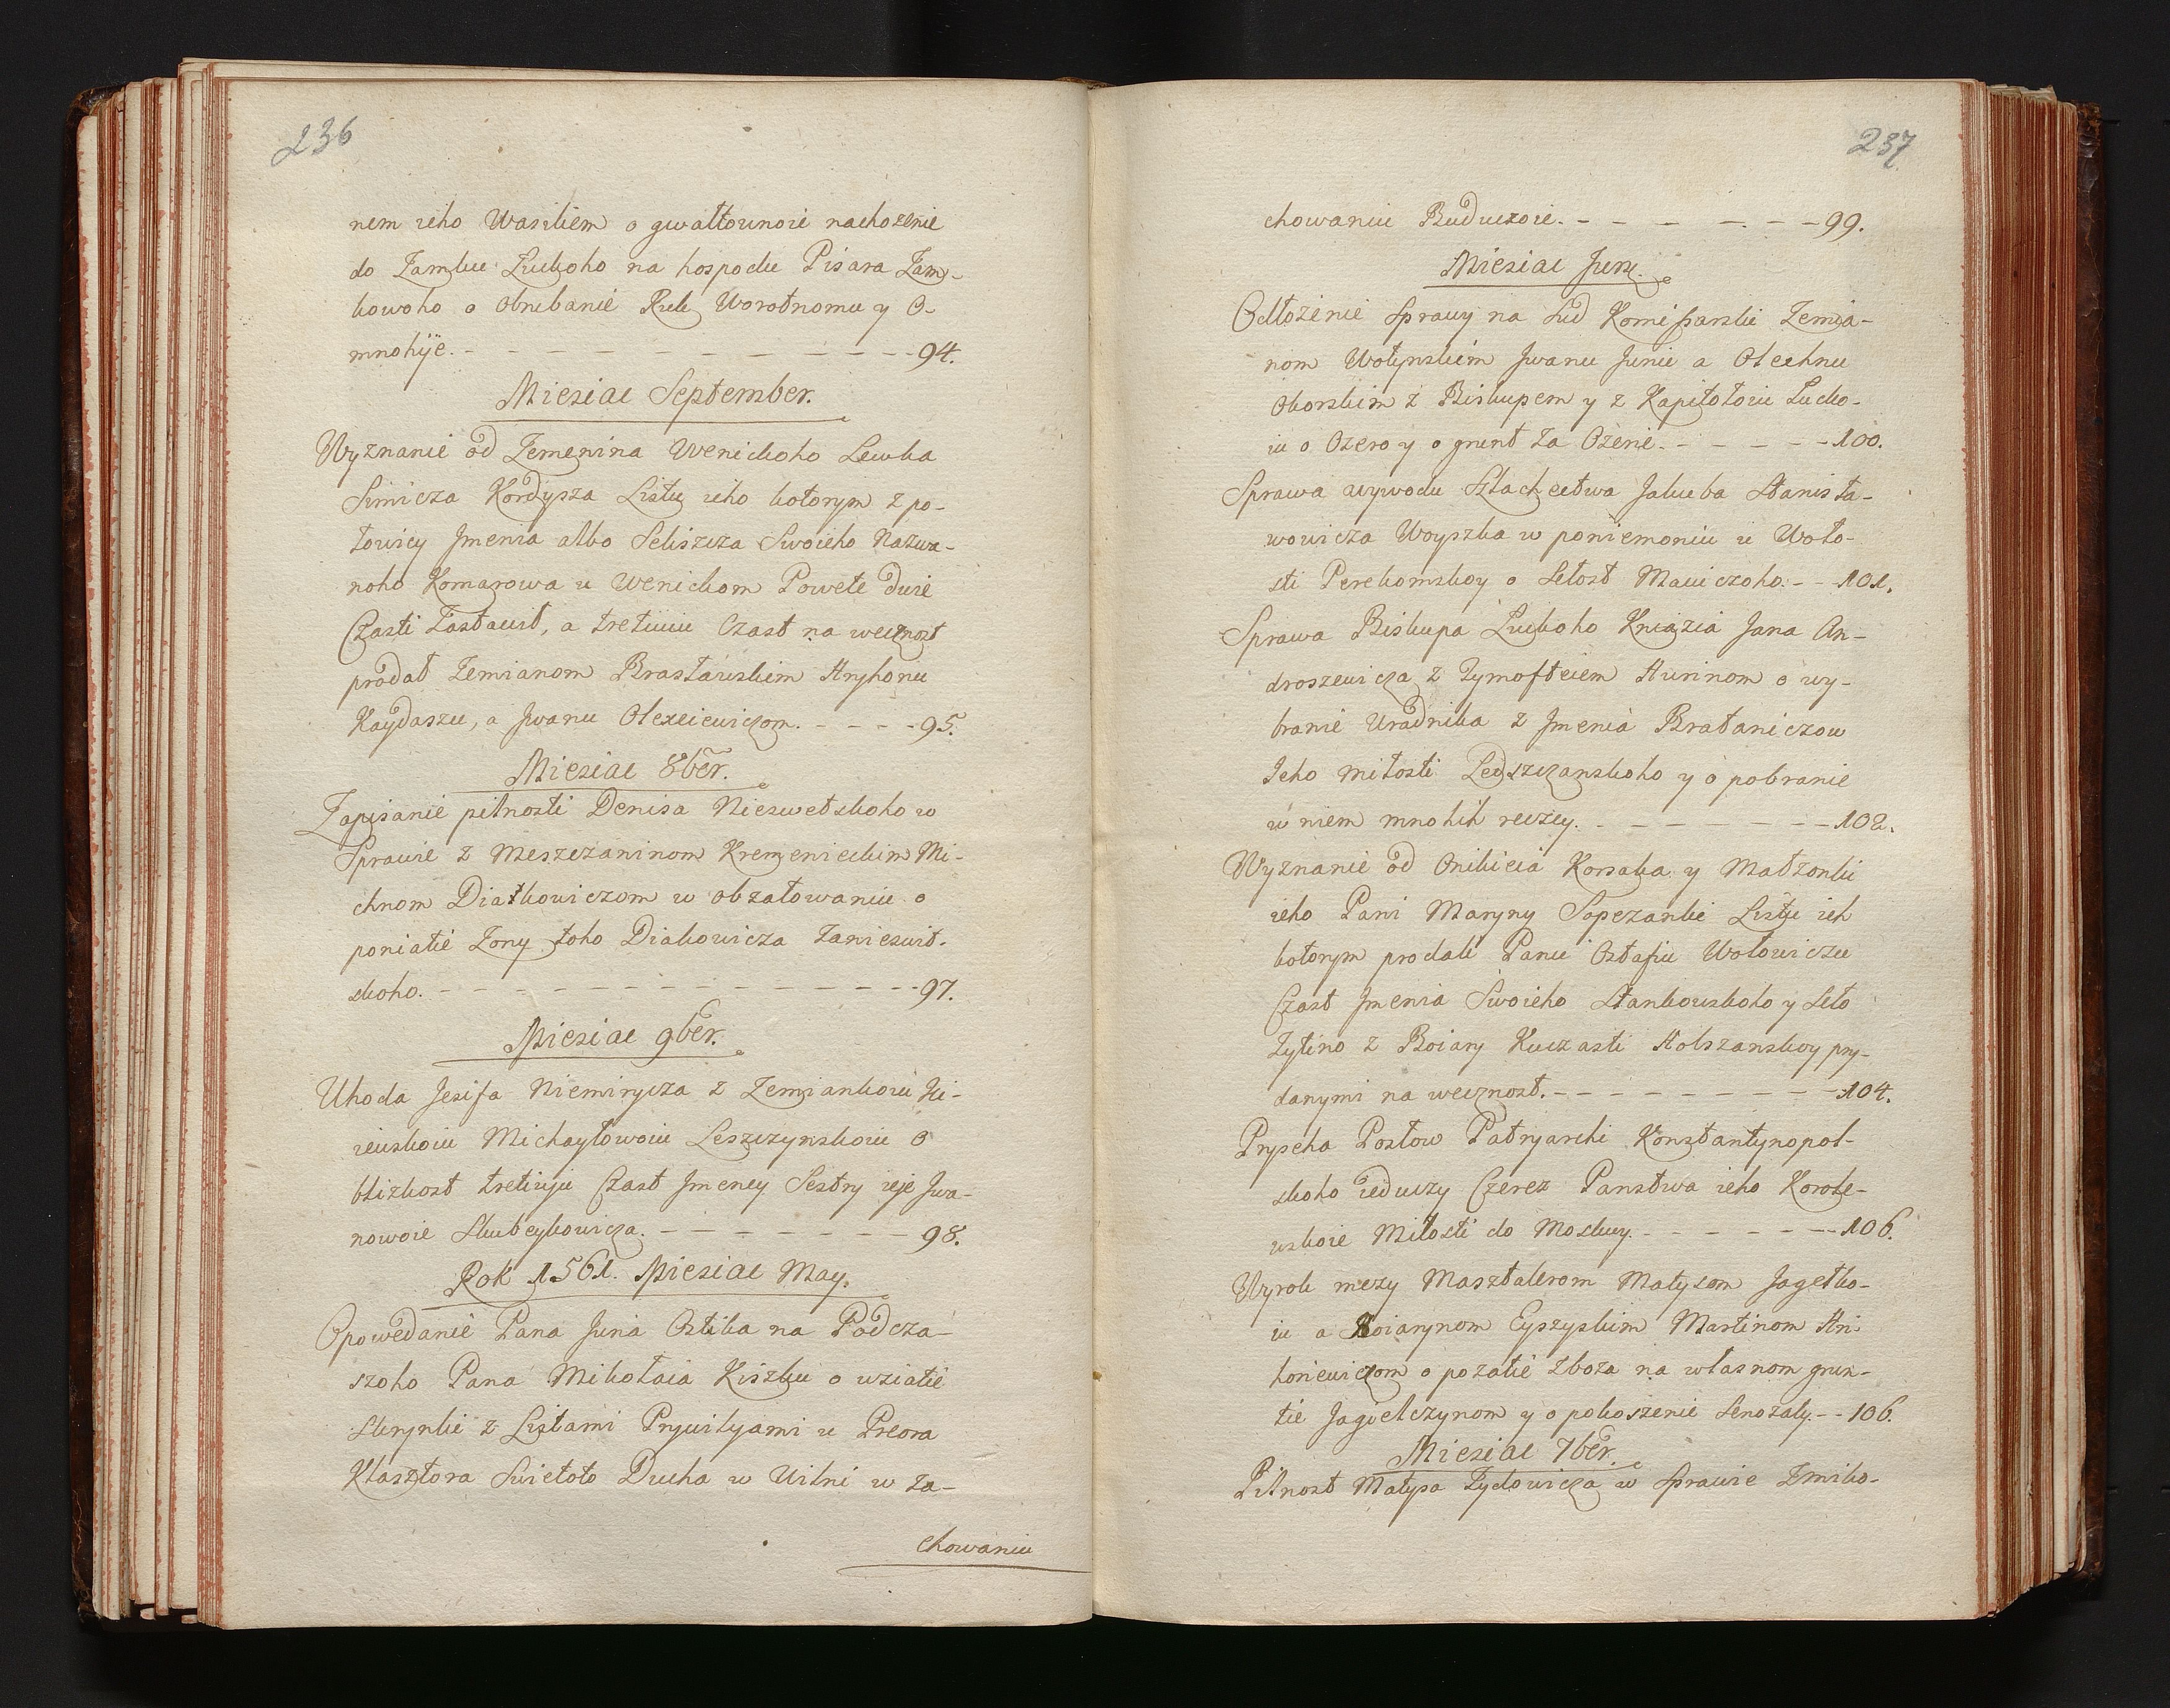 236
nem ieho Wasiliem o gwałtownoie nachożenie
do Zamku Łuckoho na hospodu Pisara Zam-
kowoho o obrubanie Ruk Worotnomu y o
mnohije. 94.
Miesiac September.
Wyznanie od Zemenina Wenickoho Lewka
Simicza Kordysza Listu ieho kotorym z po-
łowicy Jmenia albo Seliszcza Swoieho Nazwa-
noho Komarowa u Wenickom Powete dwie
Czasti Zastawił, a tretiuiu Czast na wecznost
prodał Zemianom Brasławskim Hryhoriu
Kaydaszu, a Jwanu Olexeiewiczom. 95.
Miesiac 8ber.
Zapisanie pilnosti Denisa Nieswetskoho w
Sprawie z Meszczaninom Kremenieckim Mi-
chnom Diakowiczom w obzałowaniu o
poniatie Zony toho Diakowicza Zanieswit-
skoho. 97.
Miesiac 9ber.
Uhoda Jesifa Niemirycza z Zemiankoiu Ki-
iewskoiu Michayłowoiu Leszczynskoiu o
blizkost tretiuju Czast Jmeney Sestry ieje Jwa-
nowoie Skubeykowicza. 98.
Rok 1561. Miesiac May.
Opowedanie Pana Juria Ostika na Podcza-
szoho Pana Mikołaia Kiszku o wziatie
Skrynki z Listami Prywilyami u Preora
Klasztora Swietoto Ducha w Wilni w za-
chowaniu
237
chowaniu Buduczoie. 99.
Miesiac Jun.
Odłożenie Sprawy na Sud Komissarski Zemia-
nom Wołynskim Jwanu Juriu a Olechnu
Oborskim z Biskupem y z Kapitołoiu Łucko-
iu o Ozero y o grunt za Ozerie. 100.
Sprawa wywodu Szlachectwa Jakuba Stanisła-
wowicza Woyszka w poniemoniu u Woło-
sti Perełomskoy o Sełost Mawiczoho. 101.
Sprawa Biskupa Łuckoho Kniazia Jana An-
droszewicza z Tymofteiem Hurinom o wy-
branie Uradnika z Jmenia Brataniczow
Jeho miłosti Ledszczanskoho y o pobranie
w niem mnohih reczey. 102.
Wyznanie od Onikieia Korsaka y Małżonki
ieho Pani Maryny Sopezanki Listu ich
kotorym prodali Panu Ostafiu Wołowiczu
Czast Jmenia Swoieho Stankowskoho y Seło
Żytino z Boiary Kuczasti Holszanskoy pry-
danymi na wecznost. 104.
Pryseha Posłow Patryarchi Konstantynopol-
skoho Jeduczy Czerez Panstwa ieho Korole-
wskoie Miłosti do Moskwy. 106.
Wyrok mezy Masztalerom Matysom Jagełko-
iu a Boiarynom Eyszyskim Martinom Hri-
horiewiczom o pozatie zboza na własnom grun-
tie Jagielczynom y o pokoszenie Senozaty. 106.
Miesiac 7ber.
Pilnost Matysa Żydowicza w Sprawie Zmiko-